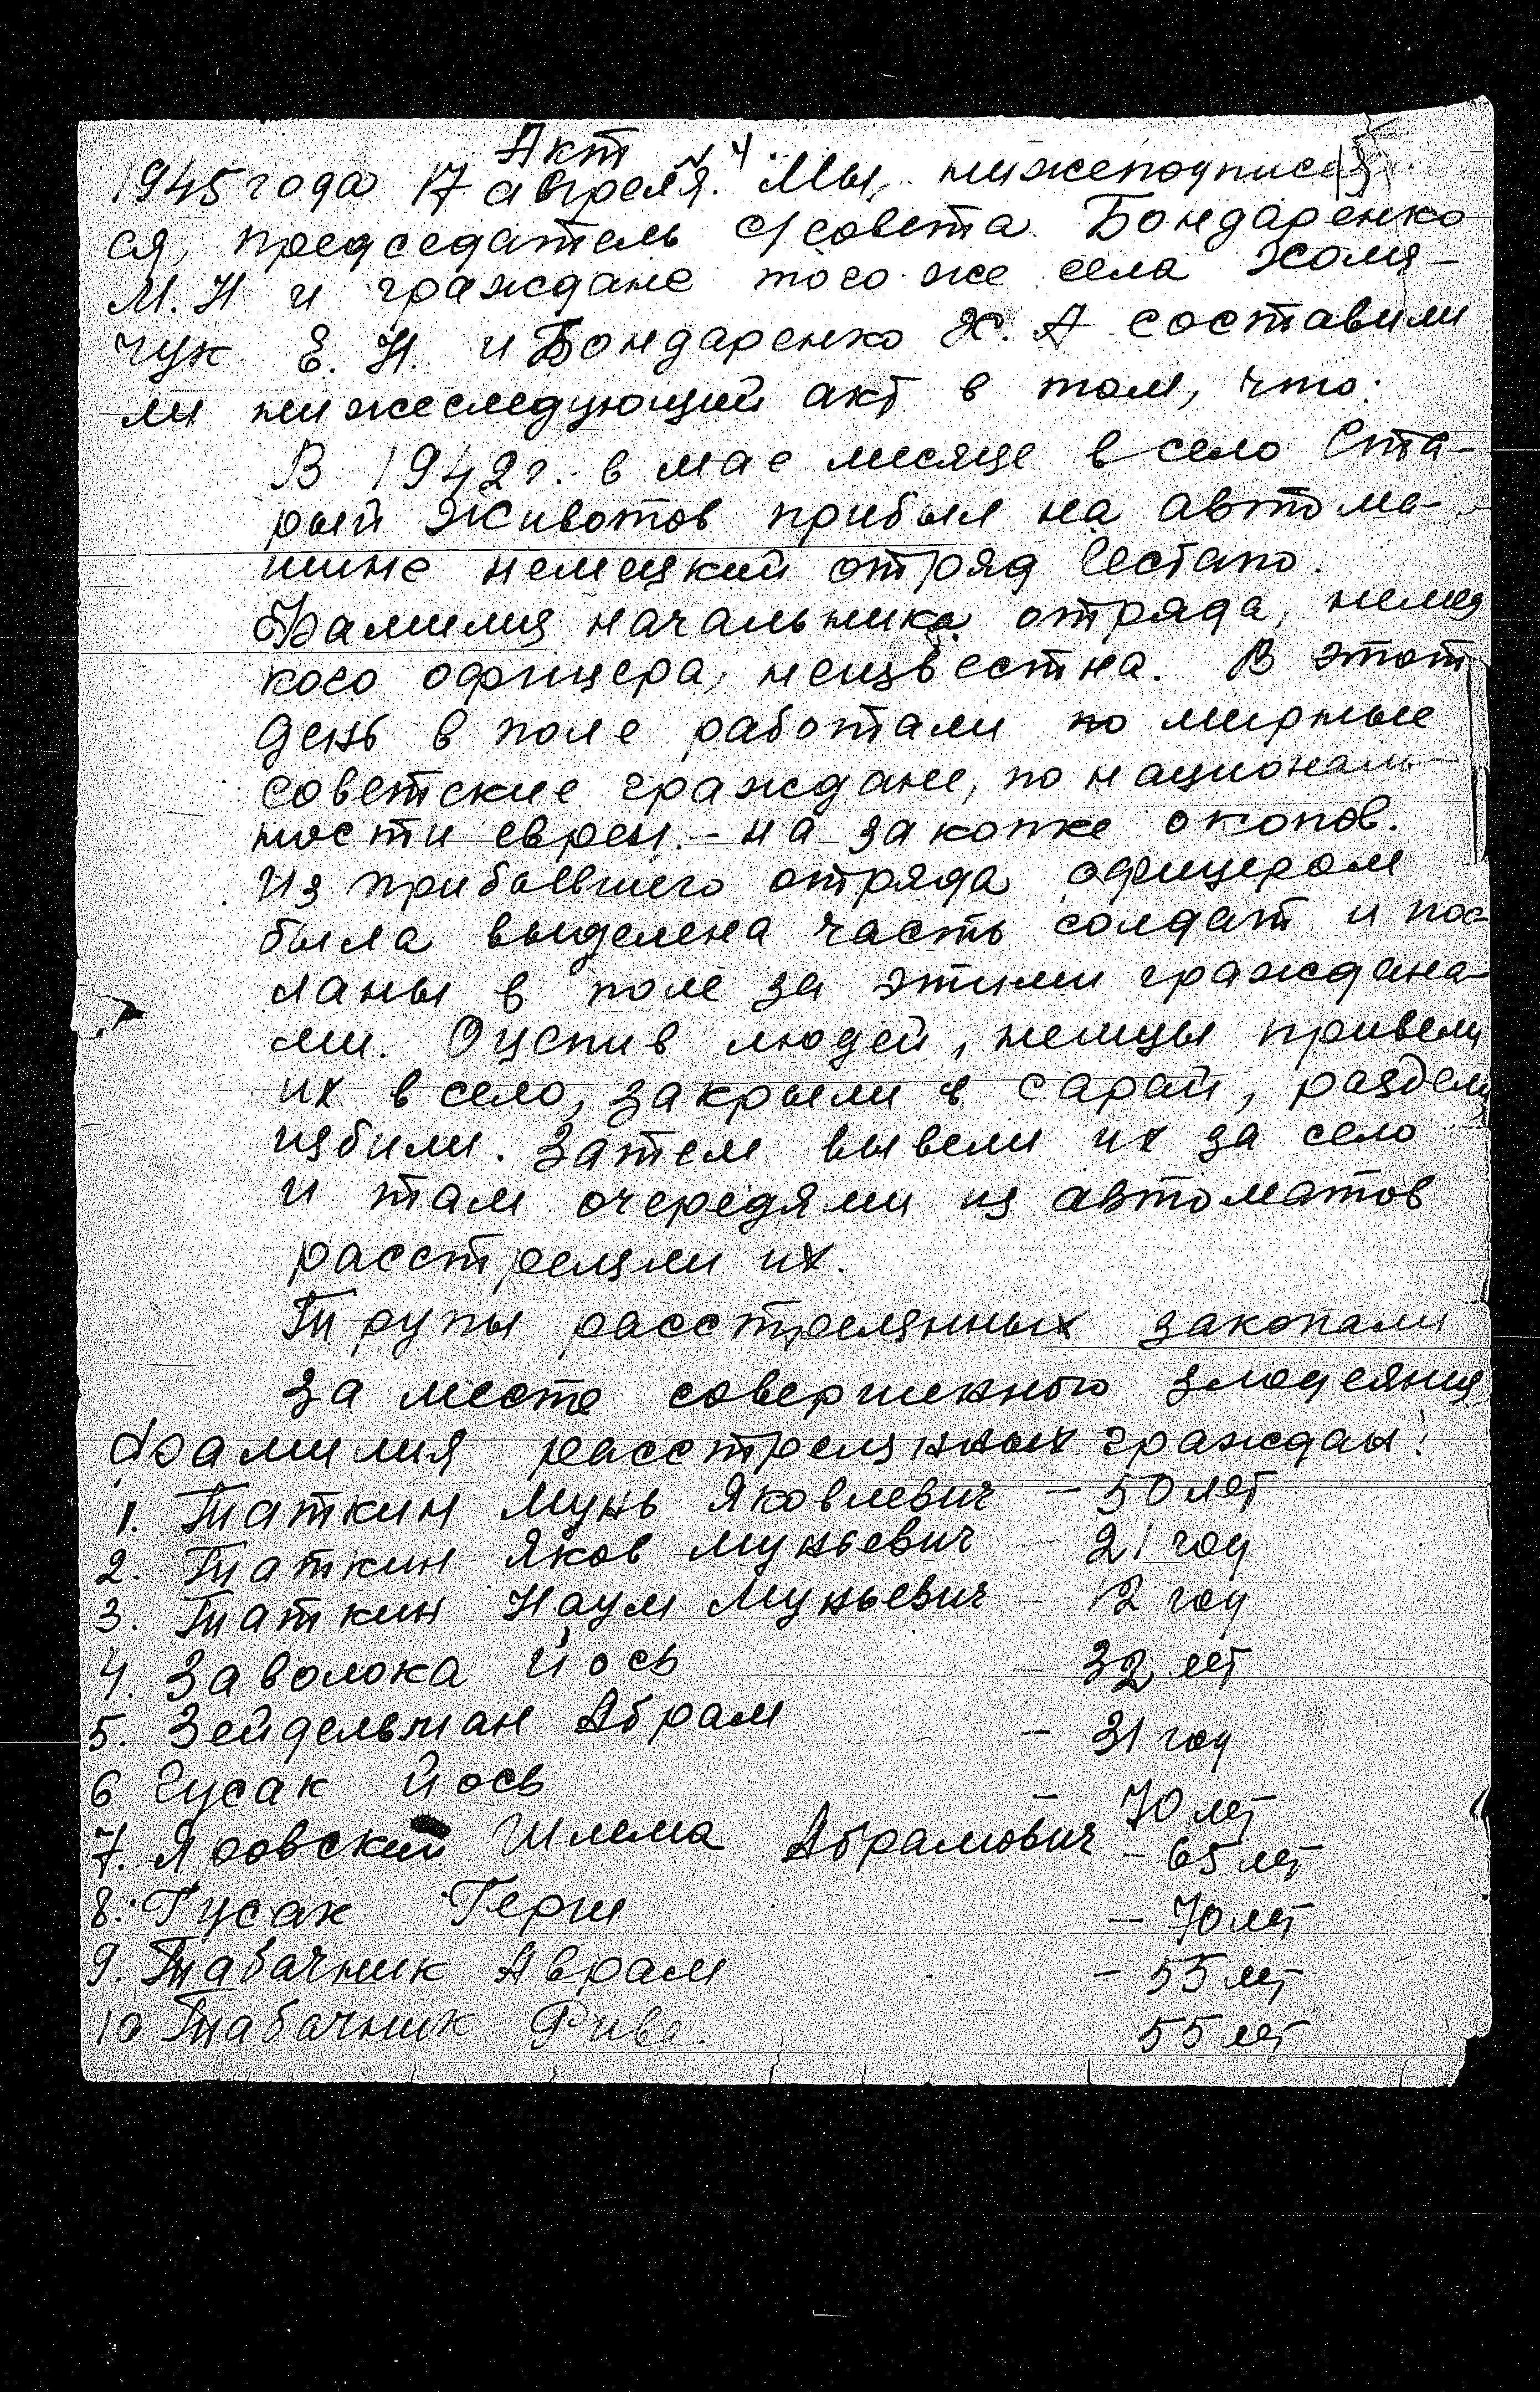 Акт N 4.
1945 года 17 апреля. Мы, нижеподписав
ся, председатель с/совета Бондаренко
М.Н и граждане того же села Хомя-
чук Е. Н. и Бондаренко Х. А составили
ли нижеследующий акт в том, что:
В 1942 г. в мае месяце в село Ста-
рый Животов прибыл на автома-
шине немецкий отряд Гестапо.
Фамилия начальника отряда, немец
кого офицера, неизвестна. В этот
день в поле работали по мирные
советские граждане, по националь-
ности евреи - на закопке окопов.
Из прибывшего отряда офицером
была выделена часть солдат и пос-
ланы в поле за этими граждана-
ми. Оцепив людей, немцы привели
их в село, закрыли в сарай, раздели
избили. Затем вывели их за село
и там очередями из автоматов
расстреляли их.
Трупы расстрелянных закопали
за место совершенного злодеяния
Фамилия расстрелянных граждан:
1. Таткин Мунь Яковлевич - 50 лет
2. Таткин Яков Муньевич - 21 год
3. Таткин Наум Муньевич - 12 год
4. Заволока Йось - 32 лет
5. Зейдельман Абрам - 31 год
6 Гусак Йось - 70 лет
7. Яровский Шлема Абрамович - 65 лет
8. Гусак Герш - 70 лет
9. Табачник Аврам - 55 лет
10 Табачник Рива. 55 лет